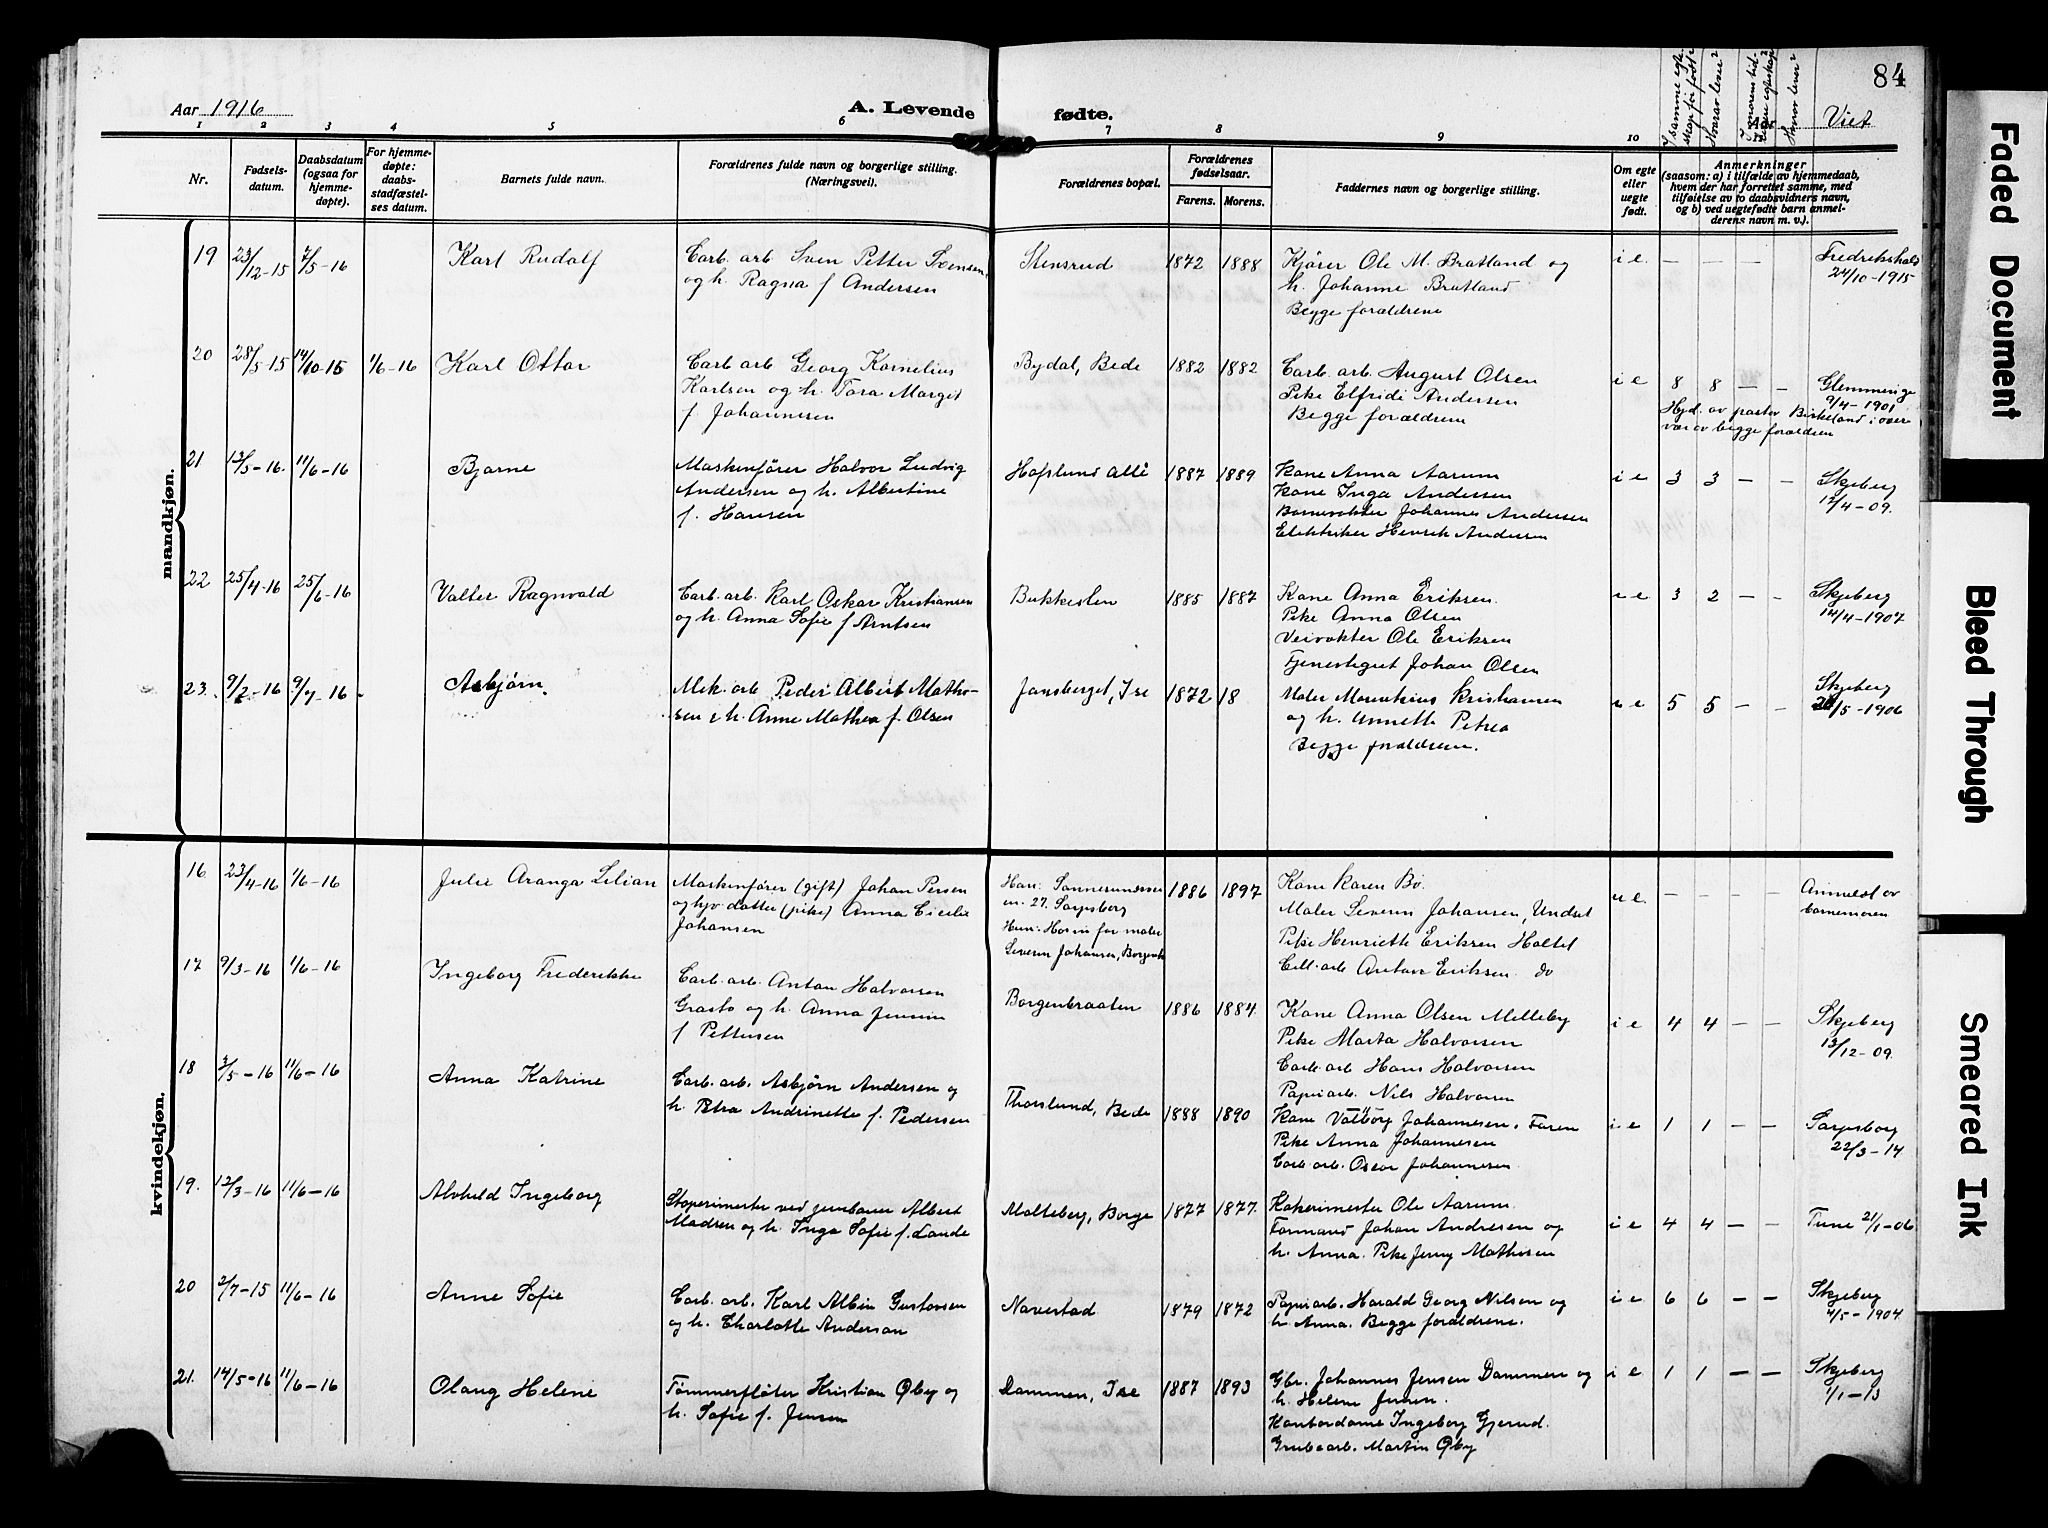 84
Aar 1916
A. Levende fødte.
Viet
1 2 3 4 5 6 7 8 9 10
Nr.
Fødsels-
datum.
Daabsdatum
(ogsaa for
hjemme-
døpte).
For hjemme-
døpte:
daabs-
stadfæstel-
ses datum.
Barnets fulde navn.
Forældrenes fulde navn og borgerlige stilling.
(Næringsvei).
Forældrenes bopæl.
Forældrenes
fødselsaar.
Farens. Morens.
Faddernes navn og borgerlige stilling.
Om egte
eller
uegte
født.
Anmerkninger
(saasom: a) i tilfælde av hjemmedaab,
hvem der har forrettet samme, med
tilføielse av to daabsvidners navn,
og b) ved uegtefødte barn anmel-
derens navn m. v.).
mandkjøn.
19 23/12-15 7/5-16 Karl Rudolf
Carb. arb Sven Petter Svensen
og h. Ragna f Andersen
Stensrud 1872 1888
Kjører Ole M. Bratland og
h. Johanne Bratland
Begge forældrene
i e. — — — —
Fredrikshald
24/10-1915
20 28/5-15 14/10-15 1/6-16 Karl Ottar
Carb. arb Georg Kornelius
Karlsen og h. Tora Margit
f Johannesen
Bydal, Bede 1882 1882
Carb. arb. August Olsen
Pike Elfride Andersen
Begge forældrene
i e 8 8 — —
Glemminge
9/4-1901
Hjd. av pastor Birkeland i over
vær av begge forældrene
21 13/5-16. 11/6-16 Bjarne
Maskinfører Halvor Ludvig
Andersen og h. Albertine
f. Hansen
Hafslund Allé 1887 1889
Kone Anna Aarum
Kone Inga Andersen
Banevokter Johannes Andersen
Elektriker Henrik Andersen
i e 3 3 — —
Skjeberg
12/4-09.
22 25/4-16 25/6-16 Valter Ragnvald
Carb. arb. Karl Oskar Kristiansen
og h. Anna Sofie f Arntsen
Bukkeslen 1885 1887
Kone Anna Eriksen.
Pike Anna Olsen
Veivokter Ole Eriksen
Tjenestegut Johan Olsen
i e 3 2 — —
Skjeberg
14/4-1907
23. 9/2-16 9/7-16 Asbjørn.
Mek. arb Peder Albert Mathi-
sen & h. Anne Mathea f. Olsen
Jonsberget, Ise 1872 18
Maler Mauritius Kristiansen
og h. Annette Petrea
Begge forældrene.
i e 5 5 — —
Skjeberg
/5-1906
kvindekjøn.
16 23/4-16 1/6-16 Julie Aranga Lilian
Maskinfører (gift) Johan Persen
og hjv. datter (pike) Anna Cicelie
Johansen
Han: Sannesundsvei
en. 27. Sarpsborg
Hun: Hos sin far maler
Severin Johansen, Borgenh
1886 1897
Kone Karen Bø.
Maler Severin Johansen, Undset
Pike Henriette Eriksen Holtet
Cell. arb Gustav Eriksen do
u e. — — — —
Anmeldt av
barnemoren
17 9/3-16 1/6-16 Ingeborg Frederikke
Carb. arb. Anton Halvorsen
Grasto og h. Anna Jensine
f Pettersen
Borgenbraaten 1886 1884
Kone Anna Olsen Melleby
Pike Marta Halvorsen
Carb. arb Hans Halvorsen
Papirarb. Nils Halvorsen
i e 4 4 — —
Skjeberg
13/12-09.
18 3/5-16 11/6-16 Anna Katrine
Carb. arb. Asbjørn Andersen og
h. Petra Andrinette f. Pedersen
Thorslund, Bede 1888 1890
Kone Valborg Johannesen. Faren
Pike Anna Johannesen
Carb. arb. Oscar Johannesen
i e 1 1 — —
Sarpsborg
22/3-14
19. 12/3-16 11/6-16 Alvhild Ingeborg
Støperimester ved jernbanen Albert
Madsen og h. Inga Sofie f. Lande
Molteberg, Borge 1877 1877.
Formand Johan Andresen og
h. Anna. Pike Jenny Mathisen
i e 4 4 — —
Tune 21/1-06
20 2/7-15 11/6-16 Anne Sofie
Carb. arb. Karl Albin Gustavsen
og h. Charlotte Anderson
Navestad 1879 1872
Papirarb. Harald Georg Nilsen og
h. Anna. Begge forældrene.
i e 6 6 — —
Skjeberg
4/5-1904
21. 14/5-16 11/6-16 Olaug Helene
Tømmerfløter Kristian Opby og
h. Sofie f. Jensen
Dammen, Ise 1887 1893
Gbr. Johannes Jensen Dammen og
h. Helene Jensen.
Kontordame Ingeborg Gjerud.
Grubearb. Martin Opby
i e 1 1 — —
Skjeberg
1/1-13
Faded Document
Bleed Through
Smeared Ink